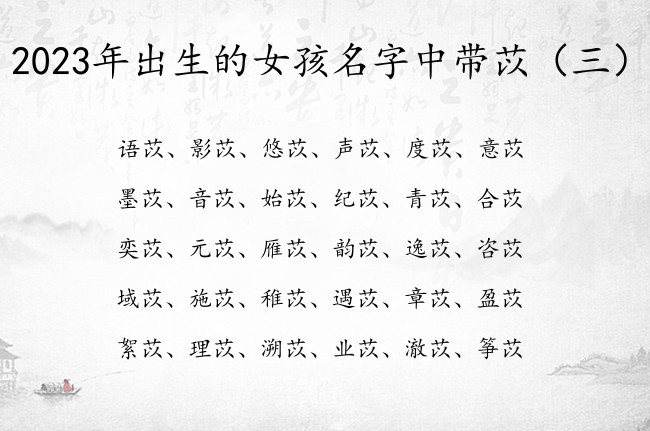 2023年出生的女孩名字中带苡（三）
语苡、影苡、悠苡、声苡、度苡、意苡
墨苡、音苡、始苡、纪苡、青苡、合苡
奕苡、元苡、雁苡、韵苡、逸苡、咨苡
域苡、施苡、稚苡、遇苡、章苡、盈苡
絮苡、理苡、溯苡、业苡、澈苡、筝苡